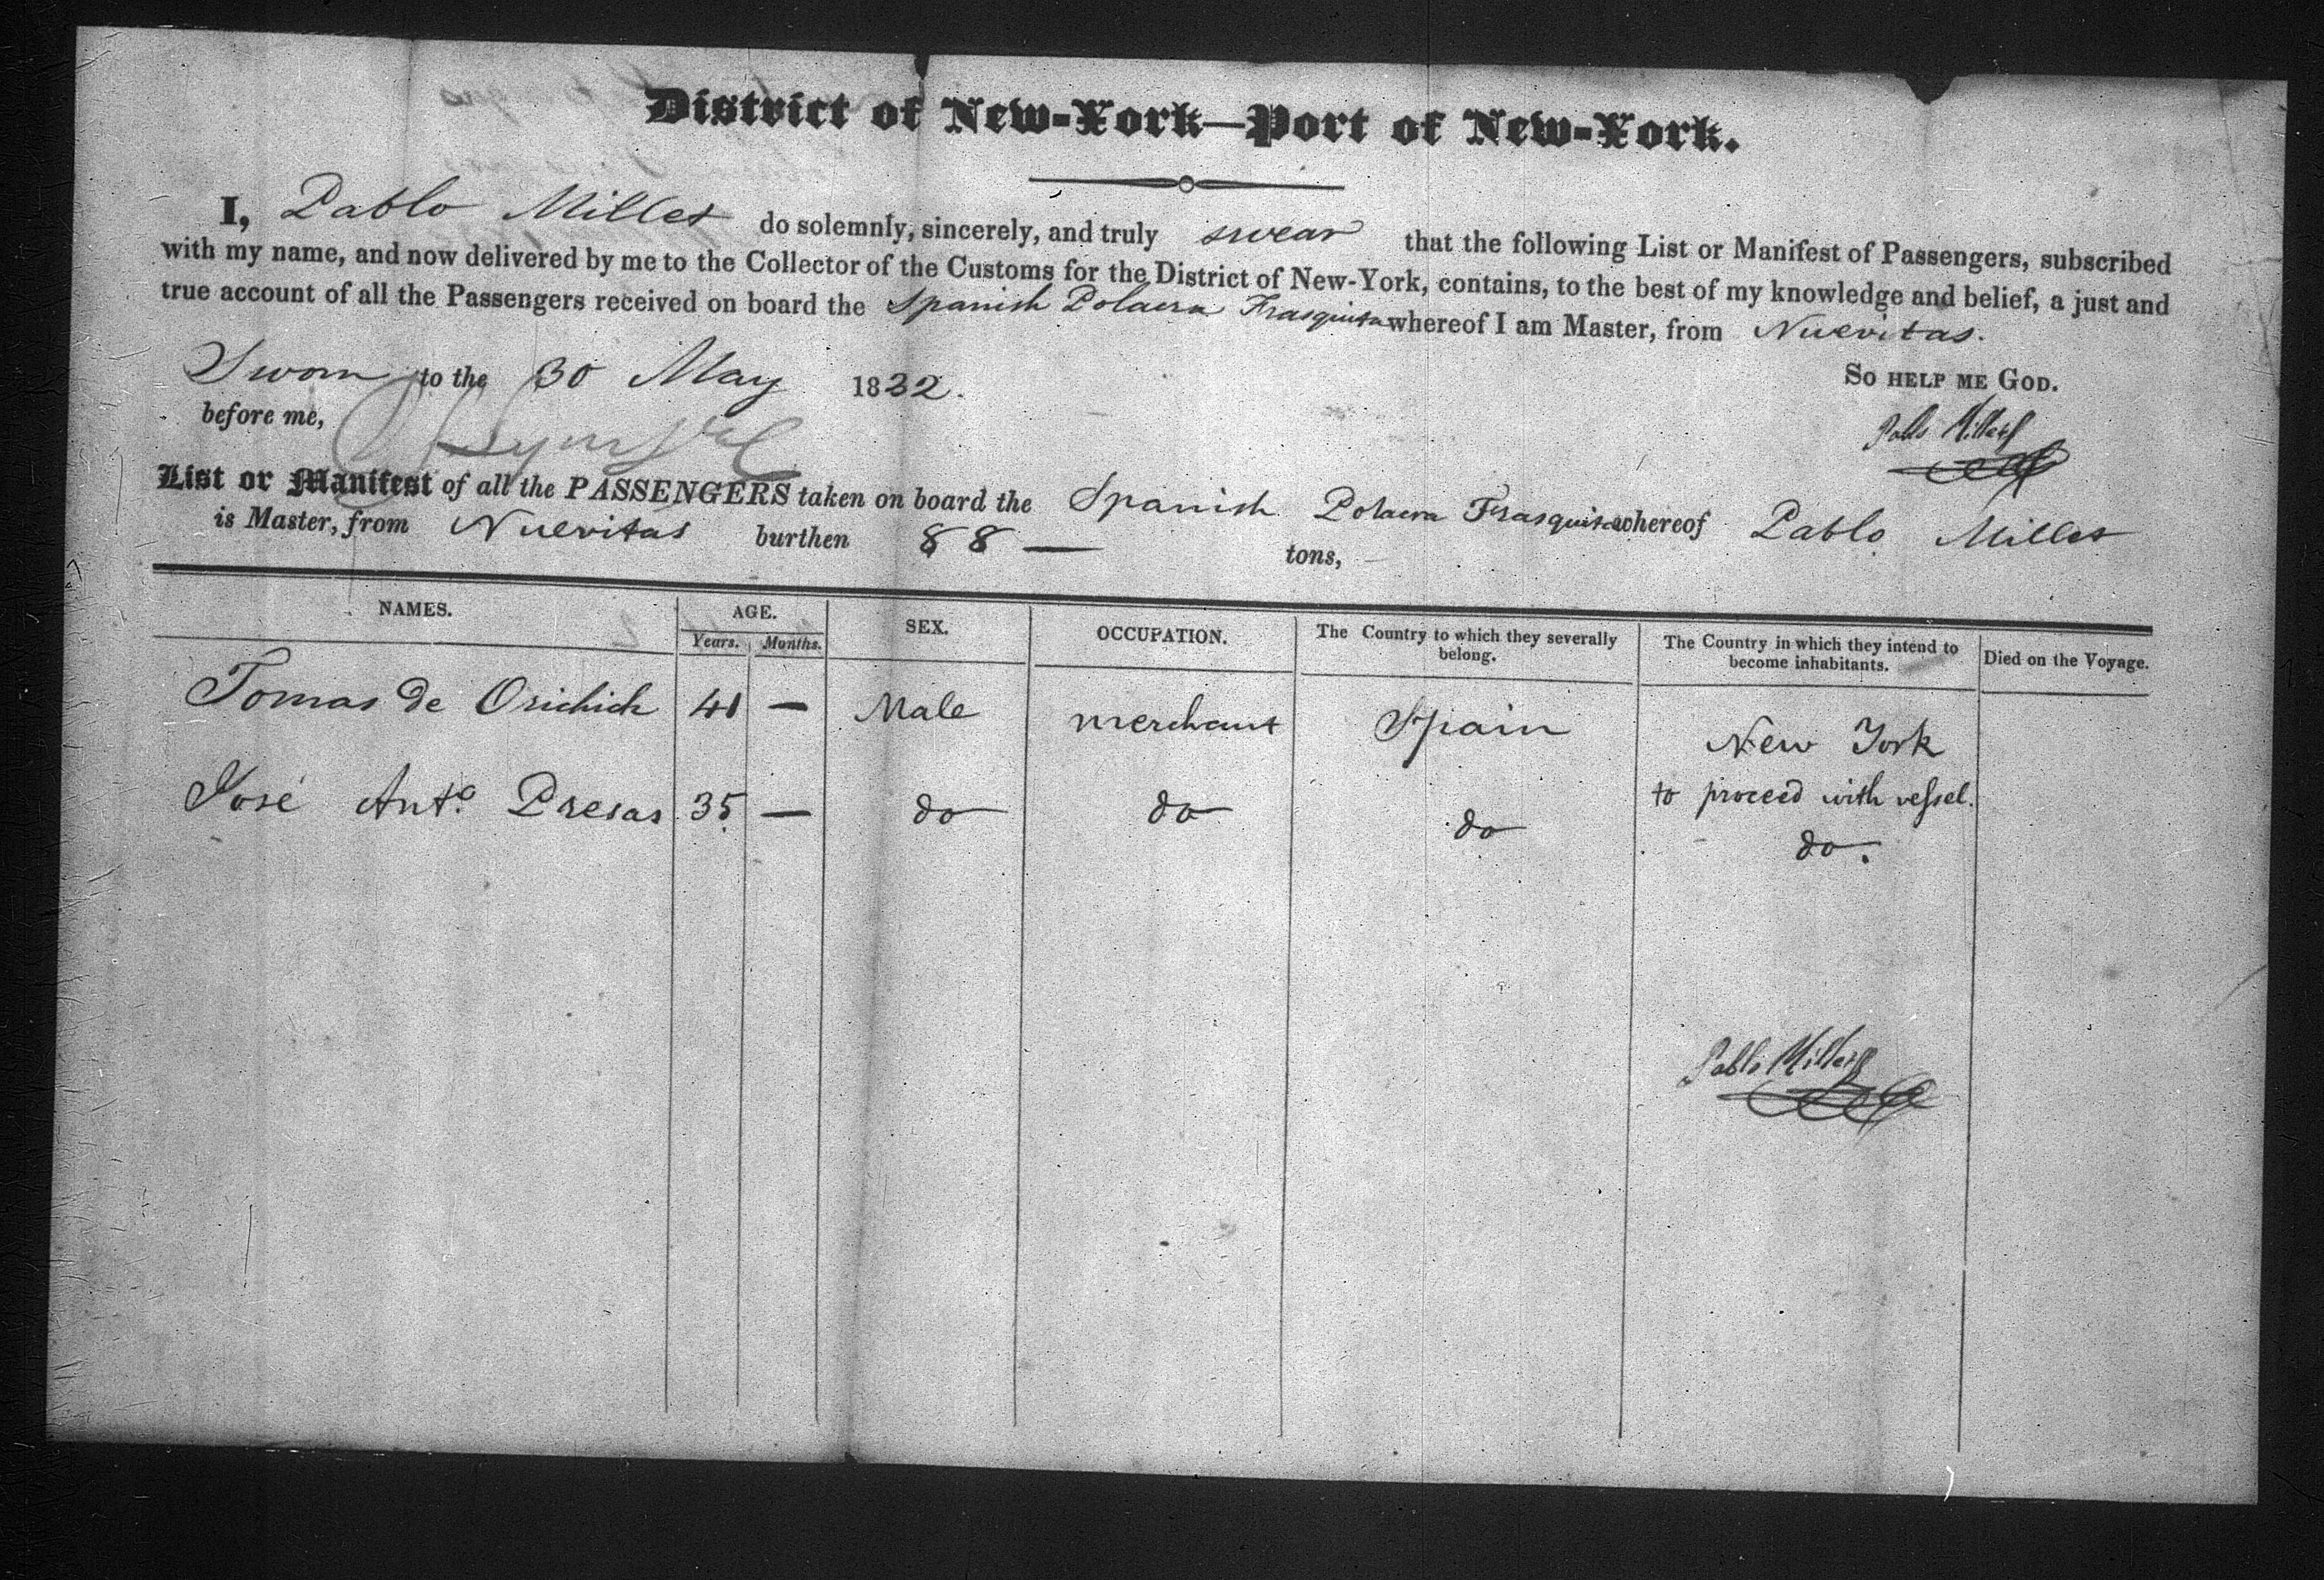 District of New-York—Port of New-York.
I, Pablo Millet do solemnly, sincerely, and truly swear that the following List or Manifest of Passengers, subscribed
with my name, and now delivered by me to the Collector of the Customs for the District of New-York, contains, to the best of my knowledge and belief, a just and
true account of all the Passengers received on board the Spanish Polacra Frasquita whereof I am Master, from Nuevitas.
Sworn to the 30 May 1832.
So help me God.
before me,
Pablo Millet
List or Manifest of all the PASSENGERS taken on board the Spanish Polacra Frasquita whereof Pablo Millet
is Master, from Nuevitas burthen 88 — tons,
NAMES. AGE. SEX. OCCUPATION. The Country to which they severally belong. The Country in which they intend to become inhabitants. Died on the Voyage.
Years. Months.
Tomas de Orichich 41 — Male merchant Spain New York
to proceed with vessel.
José Anto. Presas 35 — do do do do.
Pablo Millet